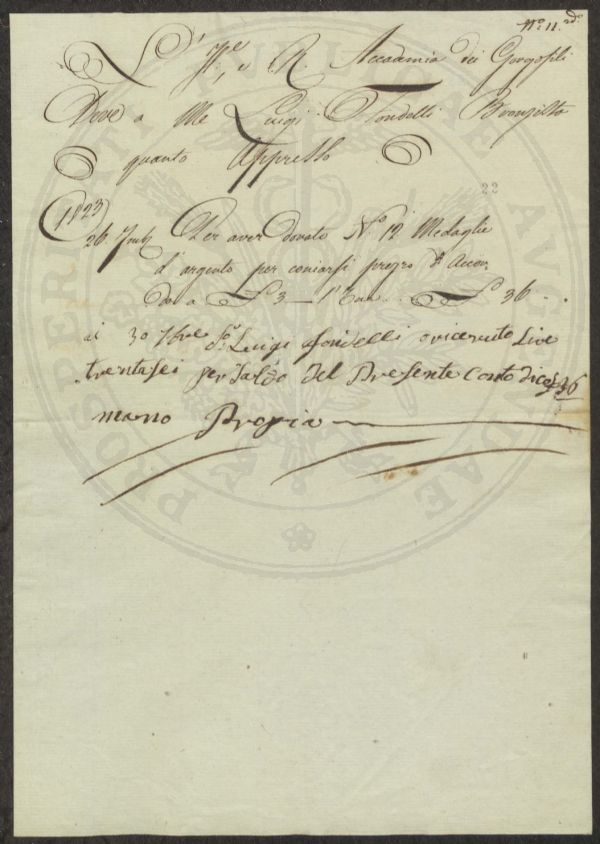 N.º 11. 2do
L' I.e, e R. Accademia dei Gorgofili
Deve a Me Luigi Fondelli Bronzista
quanto Appresso
22
1823
26. 7mb Per aver dorato N.º 12 Medaglie
d'argento per coniarsi prezzo d'Accor,
do a L.e 3 — l'una .. L.e 36 -
ai 30 7bre Io Luigi fondelli o ricevuto Lire
trentasei per Saldo del Presente Conto dico L 36
mano Propia
PROSPERITATI PUBLICAE AUGENDAE